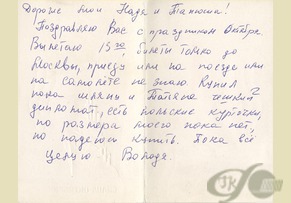 Дорогие мои Надя и Танюша!
Поздравляю Вас с праздником Октября
Вылетаю 15 00, билеты только до
Москвы, приеду или на поезде или
на самолете не знаю. Купил
пока шляпы и
есть польские курточки,
но размера моего пока нет,
но надеюсь купить. Пока всё
Целую Володя.